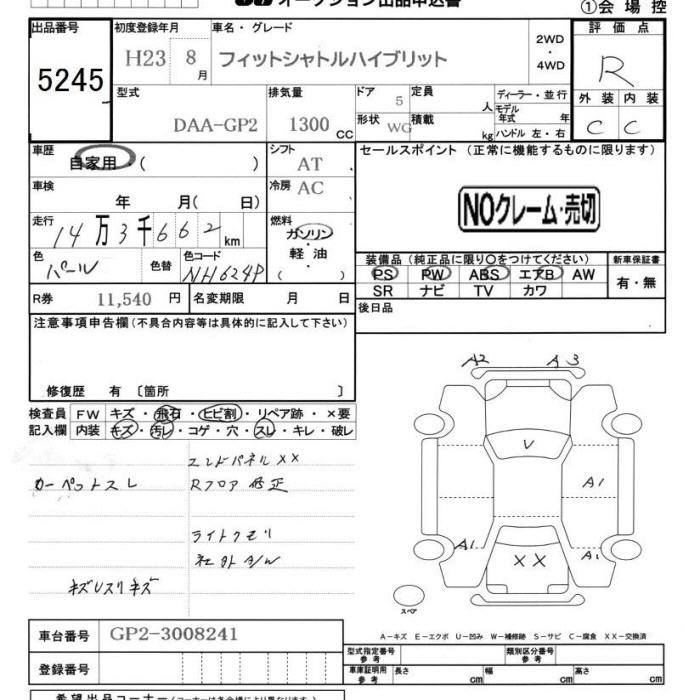 オークション出品申込書
①会場控
出品番号 初度登録年月 車名・グレード 評価点
5245 H23 8月 フィットシャトルハイブリット 2WD・4WD R
型式 排気量 ドア 定員 ディーラー・並行 外装 内装
5 人 モデル年式 年
DAA-GP2 1300CC 形状 WG 積載 kg ハンドル 左・右 C C
車歴 シフト セールスポイント (正常に機能するものに限ります)
自家用・( ) AT
車検 冷房 AC
年 月( 日) NOクレーム・売切
走行 燃料
14万3千662km ガソリン・軽油( )
色 色替 色コード 装備品(純正品に限り○をつけてください) 新車保証書
パール NH624P PS PW ABS エアB AW 有・無
R券 11,540円 名変期限 月 日 SR ナビ TV カワ
注意事項申告欄(不具合内容等は具体的に記入して下さい) 後日品
修復歴 有 〔箇所 〕
検査員 FW キズ・飛石・ヒビ割・リペア跡・×要
記入欄 内装 キズ・汚レ・コゲ・穴・スレ・キレ・破レ
A2 A3
エンドパネルXX
カーペットスレ Rフロア修正
V
A1
ライトクモリ
社外A/W
A1 XX A1
スペア
A-キズ E-エクボ U-凹み W-補修跡 S-サビ C-腐食 XX-交換済
車台番号 GP2-3008241
登録番号
型式指定番号 参考 類別区分番号 参考
車庫証明用 参考 長さ cm 幅 cm 高さ cm
希望出品コーナー(コーナーは各会場により異なります)